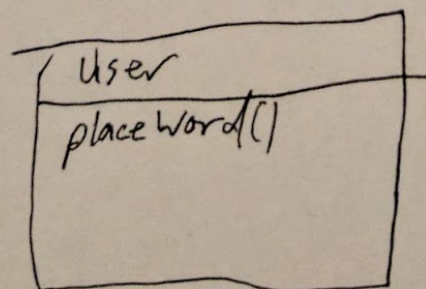 User
placeWord()